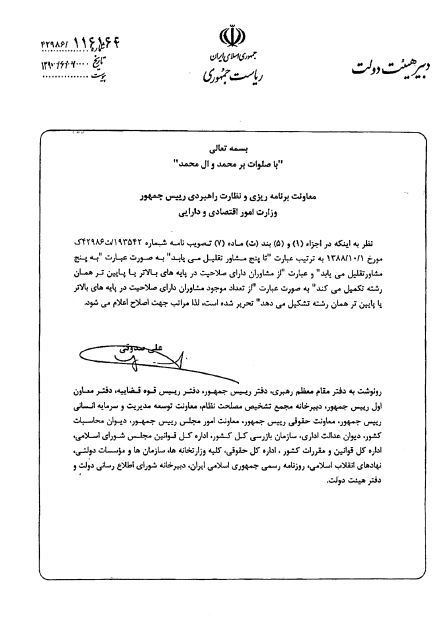 ۴۲۹۸۶/۱۱۶۱۶۶
جمهوری اسلامی ایران
ریاست جمهوری
دبیر هیئت دولت
تاریخ
پیوست
بسمه تعالی
"با صلوات بر محمد و آل محمد"
معاونت برنامه ریزی و نظارت راهبردی رییس جمهور
وزارت امور اقتصادی و دارایی
نظر به اینکه در اجزاء (۱) و (۵) بند (ث) ماده (۷) تصویب نامه شماره ۱۹۳۵۴۲/ت۴۲۹۸۶ک
مورخ ۱۳۸۸/۱۰/۱ به ترتیب عبارت "تا پنج مشاور تقلیل می یابد" به صورت عبارت "به پنج
مشاور تقلیل می یابد" و عبارت "از مشاوران دارای صلاحیت در پایه های بالاتر یا پایین تر همان
رشته تکمیل می کند" به صورت عبارت "از تعداد موجود مشاوران دارای صلاحیت در پایه های بالاتر
یا پایین تر همان رشته تشکیل می دهد" تحریر شده است، لذا مراتب جهت اصلاح اعلام می شود.
علی صدوقی
رونوشت به دفتر مقام معظم رهبری، دفتر رییس جمهور، دفتر رییس قوه قضاییه، دفتر معاون
اول رییس جمهور، دبیرخانه مجمع تشخیص مصلحت نظام، معاونت توسعه مدیریت و سرمایه انسانی
رییس جمهور، معاونت حقوقی رییس جمهور، معاونت امور مجلس رییس جمهور، دیوان محاسبات
کشور، دیوان عدالت اداری، سازمان بازرسی کل کشور، اداره کل قوانین مجلس شورای اسلامی،
اداره کل قوانین و مقررات کشور، اداره کل حقوقی، کلیه وزارتخانه ها، سازمان ها و مؤسسات دولتی،
نهادهای انقلاب اسلامی، روزنامه رسمی جمهوری اسلامی ایران، دبیرخانه شورای اطلاع رسانی دولت و
دفتر هیئت دولت.